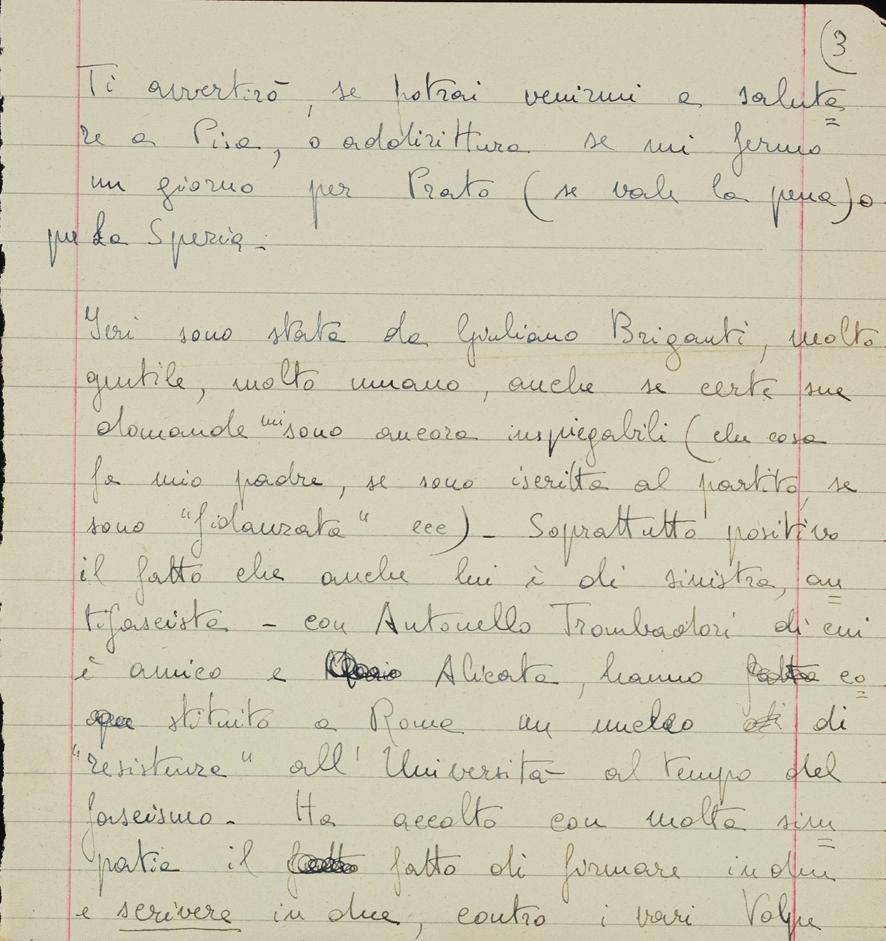 3
Ti avvertirò, se potrai venirmi a saluta
re a Pisa, o addirittura se mi fermo
un giorno per Prato (se vale la pena) o
per La Spezia.
Ieri sono stata da Giuliano Briganti, molto
gentile, molto umano, anche se certe sue
domande mi sono ancora inspiegabili (che cosa
fa mio padre, se sono iscritta al partito, se
sono "fidanzata" ecc) - Soprattutto positivo
il fatto che anche lui è di sinistra, an
tifascista - con Antonello Trombadori di cui
è amico e Alicata, hanno co
stituito a Roma un nucleo di
"resistenza" all'Università al tempo del
fascismo - Ha accolto con molta sim
patia il fatto di firmare in due
e scrivere in due, contro i vari Volpe